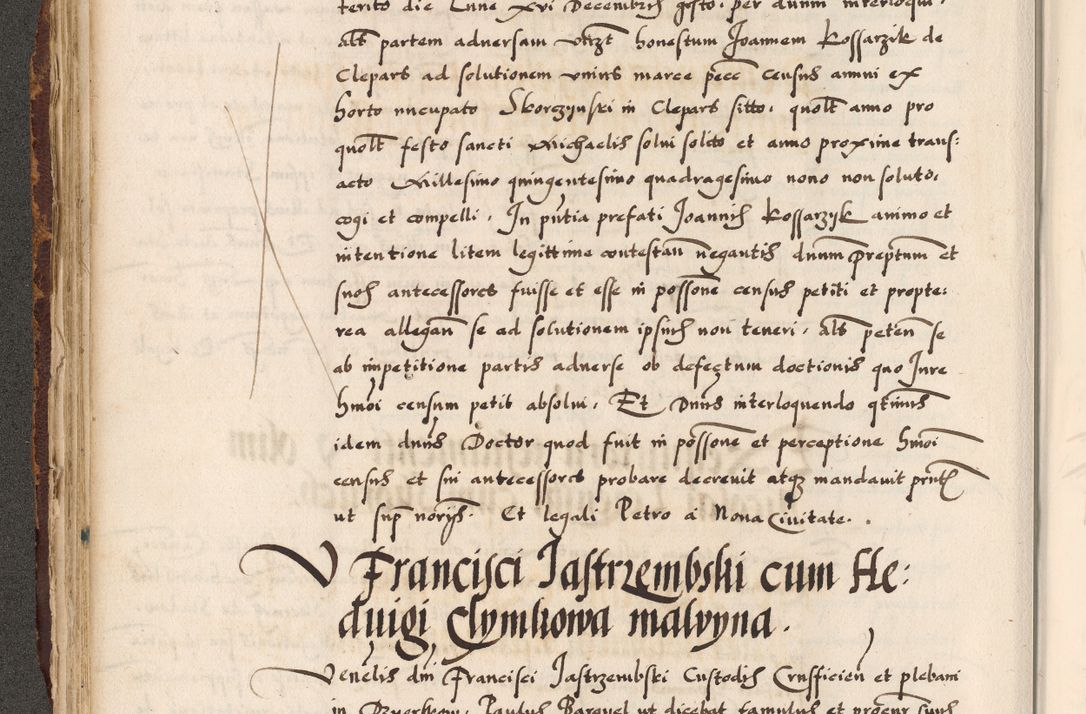 terito die Lune xvi Decembris gesto, per dnum interloqui,
als partem adversam vtzt honestum Joannem Kossarzik de
Cleparz ad solutionem vnius marce pecc census annui ex
horto nucupato Skorczynski in Clepars sitto, quolt anno pro
quolt festo sancti Michaelis solui solito et anno proxime trans:
acto Millesimo quingentesimo quadragesimo nono non soluto,
cogi et compelli, In pntia prefati Joannis Kossarzyk animo et
intentione litem legittime contestan negantis dnum preptnum et
suos antecessores fuisse et esse in possone census petiti et propte:
rea allegan se ad solutionem ipsius non teneri, als peten se
ab impetitione partis adverse ob defectum doctionis quo Jure
hmoi censum petit absolui, Et Dnus interloquendo qtmus
idem dnus Doctor quod fuit in possone et perceptione hmoi
census et sui antecessores probare decreuit atqz mandauit pntl
ut sup norijs. Et legali Petro a Nona Ciuitate.
V Francisci Jastrzembski cum He:
dvigi Clymkowa malvyna.
Venelis dni Francisci Jastrzembski Custodis Crusficien et plebani
in Paulus ut dicebat famulus et procur suus